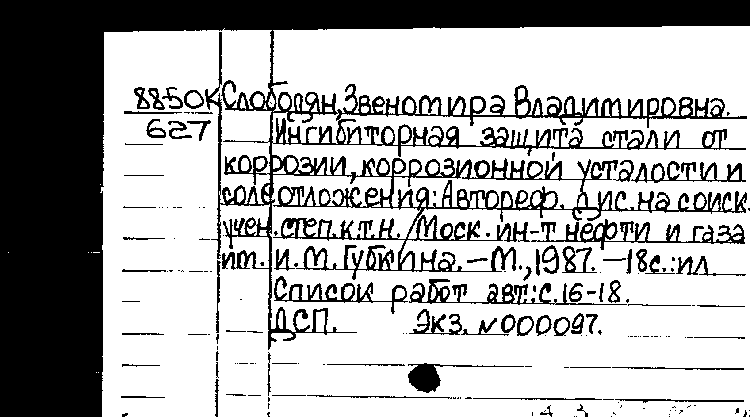 88-50К Слободян, Звеномира Владимировна.
627 Ингибиторная защита стали от
коррозии, коррозионной усталости и
солеотложения: Автореф. дис. на соиск.
учен. степ. к.т.н. / Моск. ин-т нефти и газа
им. И.М. Губкина. – М., 1987. – 18с.: ил.
Список работ авт.: с. 16-18.
ДСП. Экз. №000097.